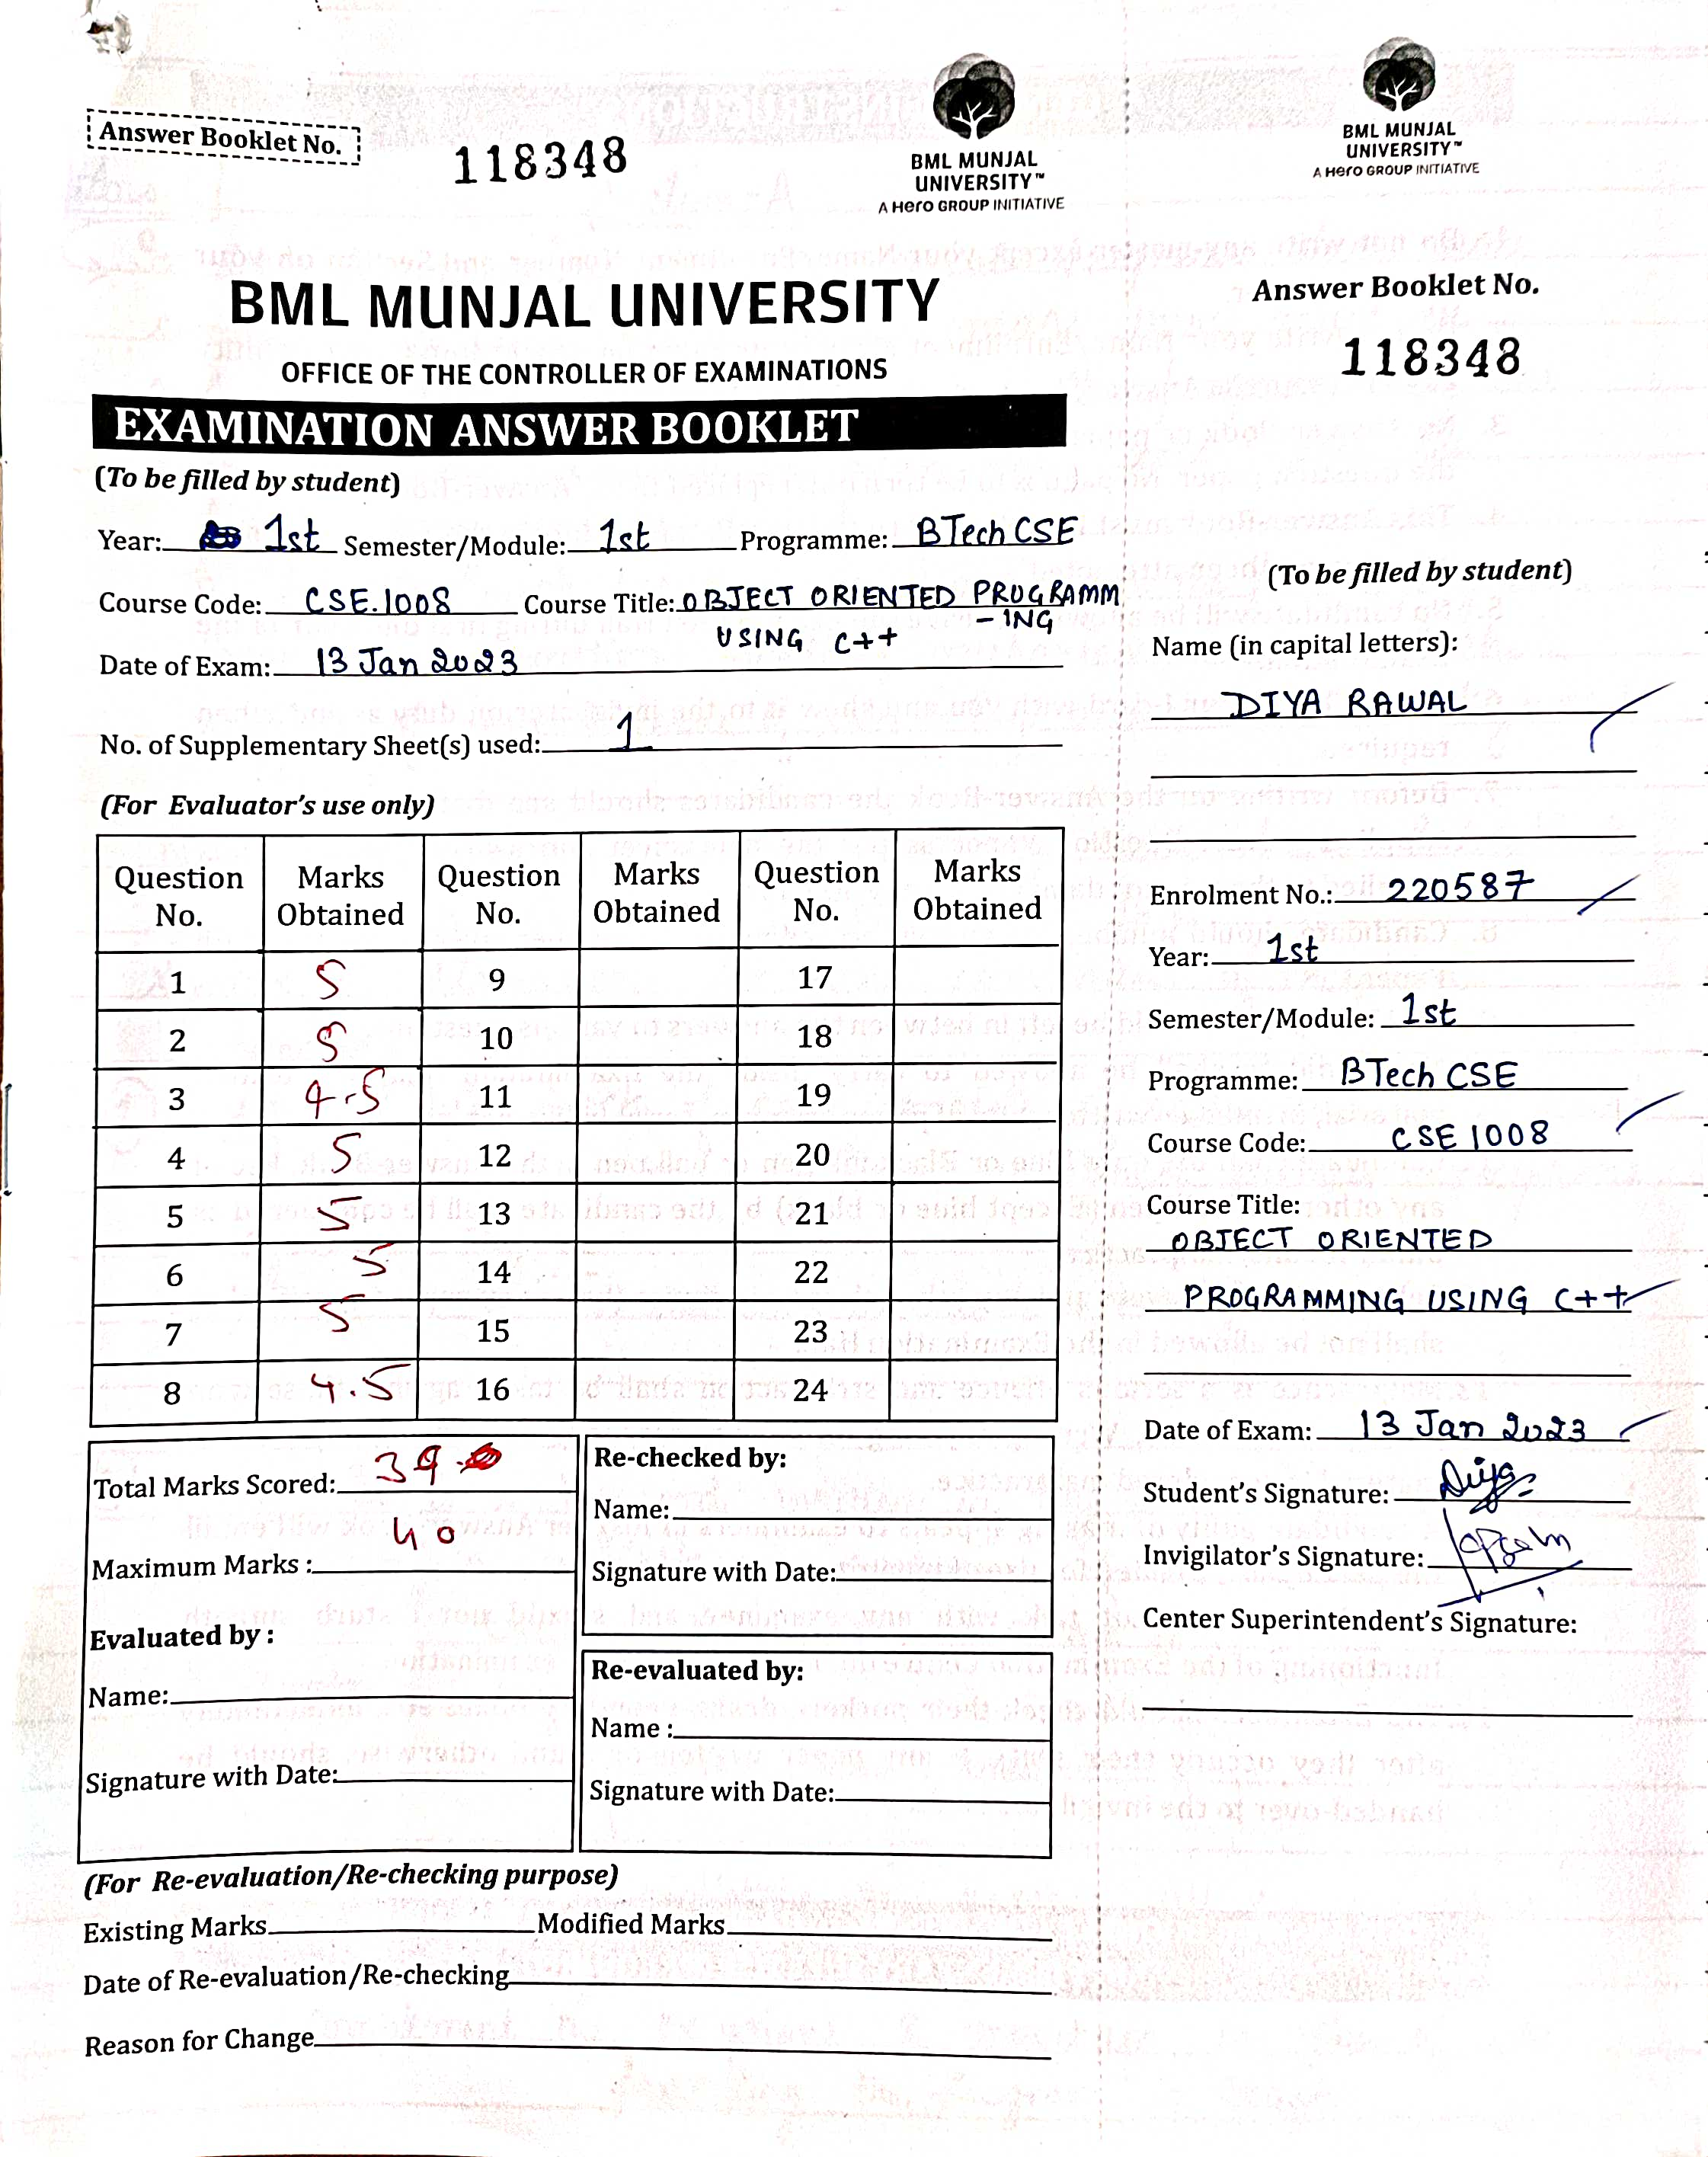 Answer Booklet No.
118348
BML MUNJAL
UNIVERSITY™
A Hero GROUP INITIATIVE
BML MUNJAL UNIVERSITY
OFFICE OF THE CONTROLLER OF EXAMINATIONS
EXAMINATION ANSWER BOOKLET
(To be filled by student)
Year: 1st Semester/Module: 1st Programme: BTech CSE
Course Code: CSE.1008 Course Title: OBJECT ORIENTED PROGRAMM
-ING
USING C++
Date of Exam: 13 Jan 2023
No. of Supplementary Sheet(s) used: 1
(For Evaluator's use only)
Question No. Marks Obtained Question No. Marks Obtained Question No. Marks Obtained
1 5 9 17
2 5 10 18
3 4.5 11 19
4 5 12 20
5 5 13 21
6 5 14 22
7 5 15 23
8 4.5 16 24
Total Marks Scored: 39
Maximum Marks : 40
Evaluated by :
Name:
Signature with Date:
Re-checked by:
Name:
Signature with Date:
Re-evaluated by:
Name :
Signature with Date:
(For Re-evaluation/Re-checking purpose)
Existing Marks Modified Marks
Date of Re-evaluation/Re-checking
Reason for Change
BML MUNJAL
UNIVERSITY™
A Hero GROUP INITIATIVE
Answer Booklet No.
118348
(To be filled by student)
Name (in capital letters):
DIYA RAWAL
Enrolment No.: 220587
Year: 1st
Semester/Module: 1st
Programme: BTech CSE
Course Code: CSE 1008
Course Title:
OBJECT ORIENTED
PROGRAMMING USING C++
Date of Exam: 13 Jan 2023
Student's Signature: Diya
Invigilator's Signature:
Center Superintendent's Signature: